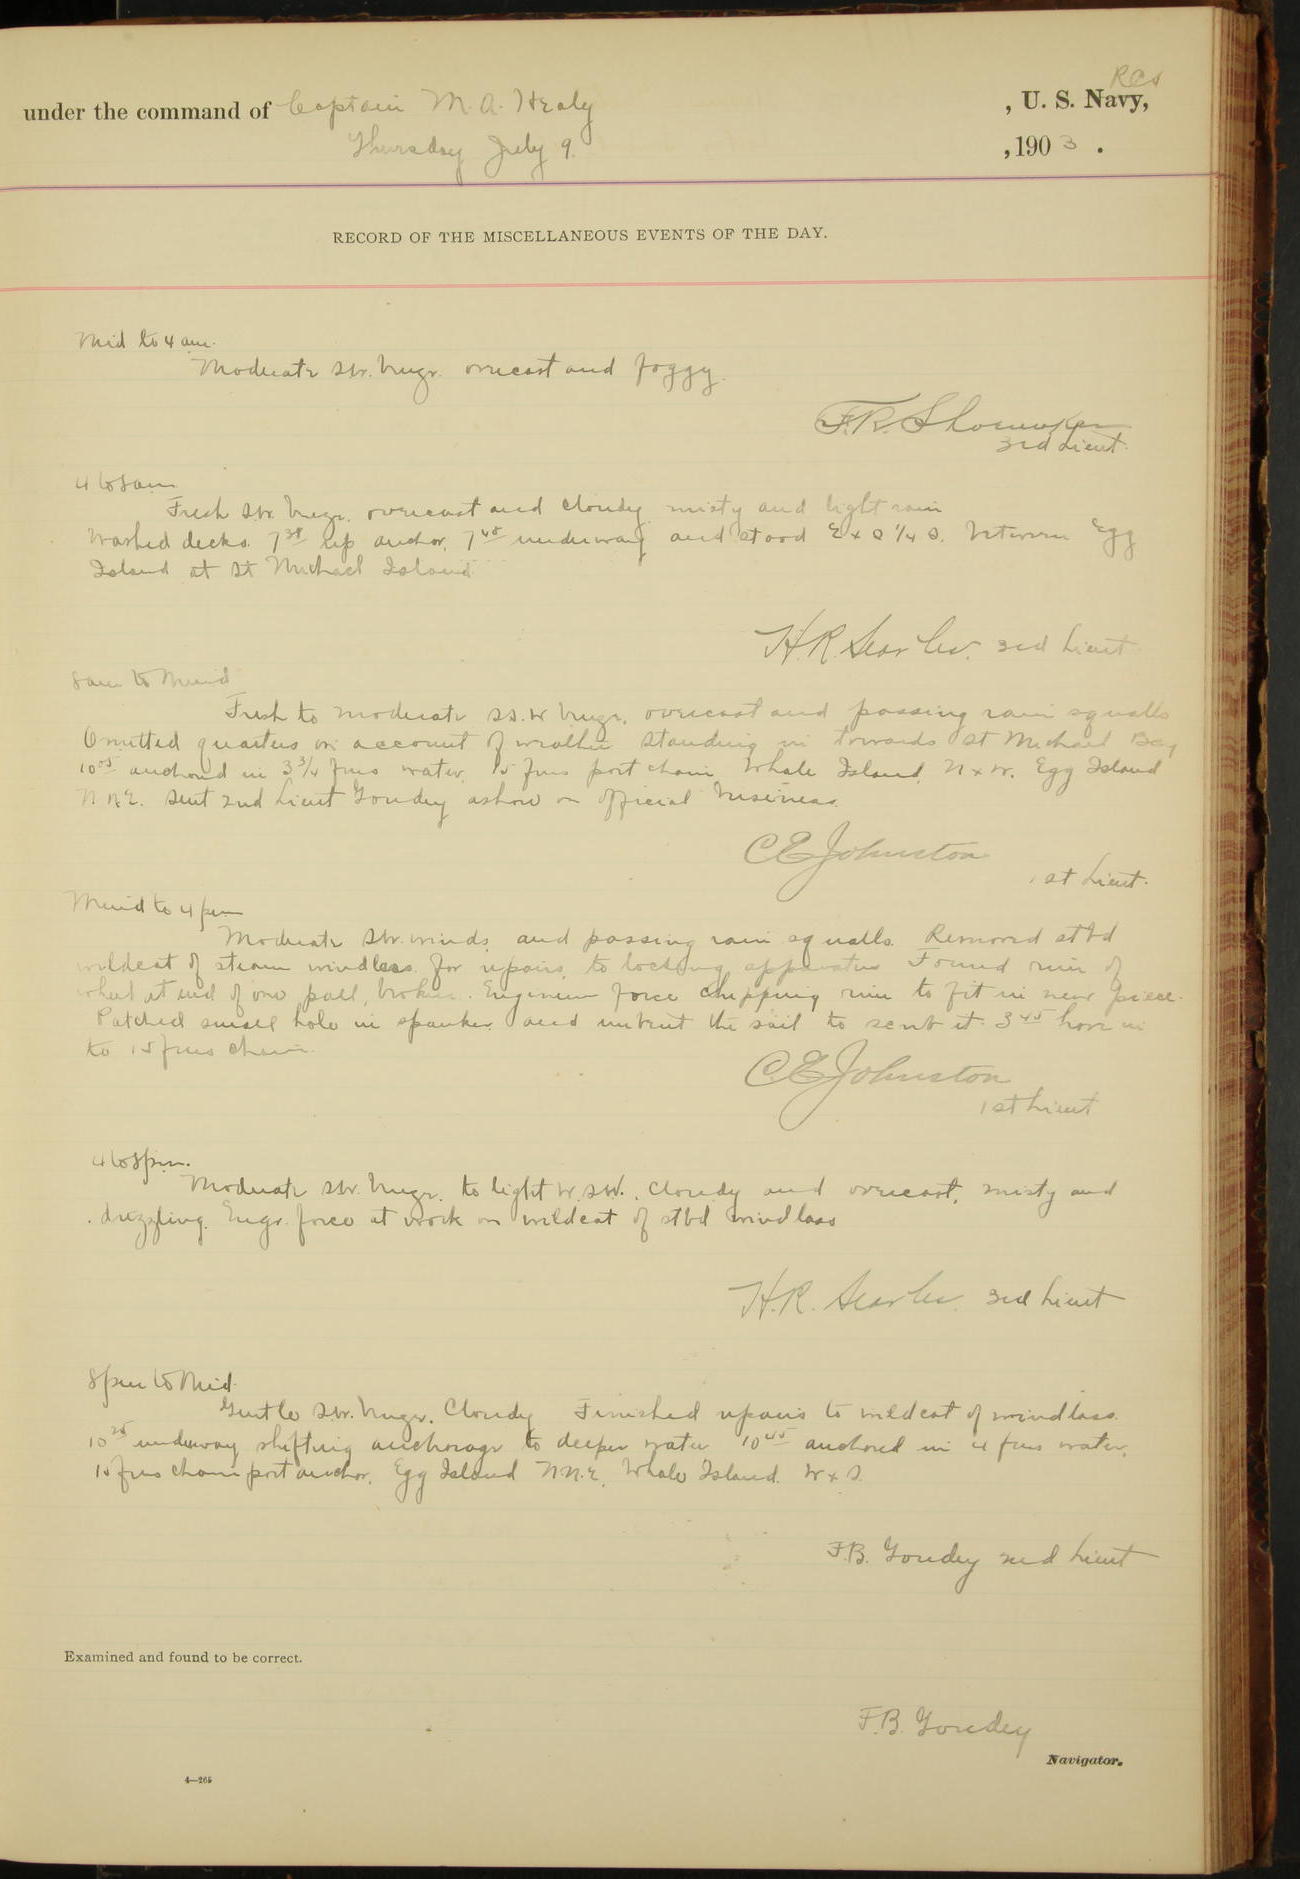 RCS
under the command of Captain M. A. Healy , U. S. Navy,
Thursday July 9. , 1903 .
RECORD OF THE MISCELLANEOUS EVENTS OF THE DAY.
Mid to 4 am.
Moderate SW. breeze. overcast and foggy.
F.R. Shoemaker
3rd Lieut.
4 to 8 am
Fresh SW. breeze. overcast and cloudy misty and light rain
Washed decks. 7 38 up anchor, 7 45 underway and stood E x S 1/4 S. between Egg
Island at St Michael Island
H.R. Searles. 3rd Lieut
8 am to Merid
Fresh to moderate SS.W breeze, overcast and passing rain squalls
Omitted quarters on account of weather standing in towards St Michael Bay
10 05 anchored in 3 3/4 fms water, 15 fms port chain Whale Island, N x W. Egg Island
N N.E. Sent 2nd Lieut Goudey ashore on official business.
C E Johnston
1st Lieut.
Merid to 4 pm
Moderate SW. winds, and passing rain squalls. Removed stbd
wildcat of steam windlass for repairs, to locking apparatus Found rim of
wheel at end of one pall, broken. Engineer force chipping rim to fit in new piece.
Patched small hole in spanker and unbent the sail to it. 3 45 hove in
to 15 fms chain.
C.E. Johnston
1st Lieut
4 to 8 pm.
Moderate SW. breeze. to light W.SW., cloudy and overcast, misty and
drizzling. Engr. force at work on wildcat of stbd windlass
H.R. Searles. 3rd Lieut
8 pm to Mid.
Gentle SW. breeze. Cloudy Finished repairs to wildcat of windlass.
10 25 underway shifting anchorage to deeper water 10 45 anchored in 4 fms water,
15 fms chain port anchor, Egg Island NN.E, Whale Island. W x S.
F.B. Goudey 2nd Lieut
Examined and found to be correct.
F.B. Goudey
Navigator.
4—265